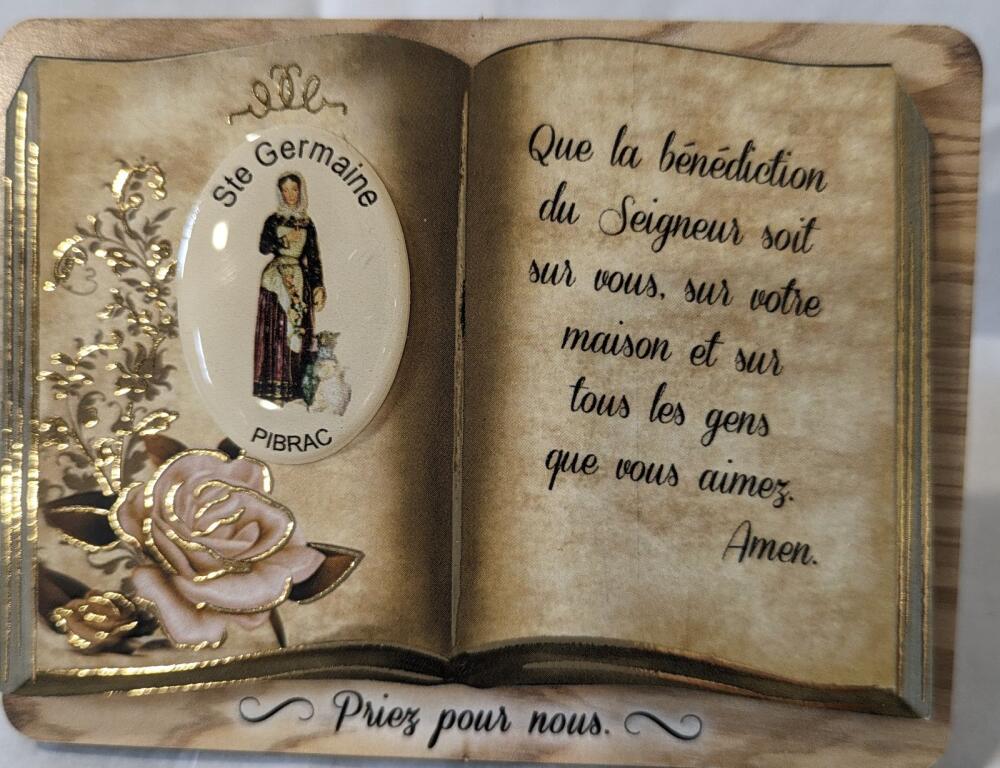 Ste Germaine
PIBRAC
Que la bénédiction
du Seigneur soit
sur vous, sur votre
maison et sur
tous les gens
que vous aimez.
Amen.
Priez pour nous.